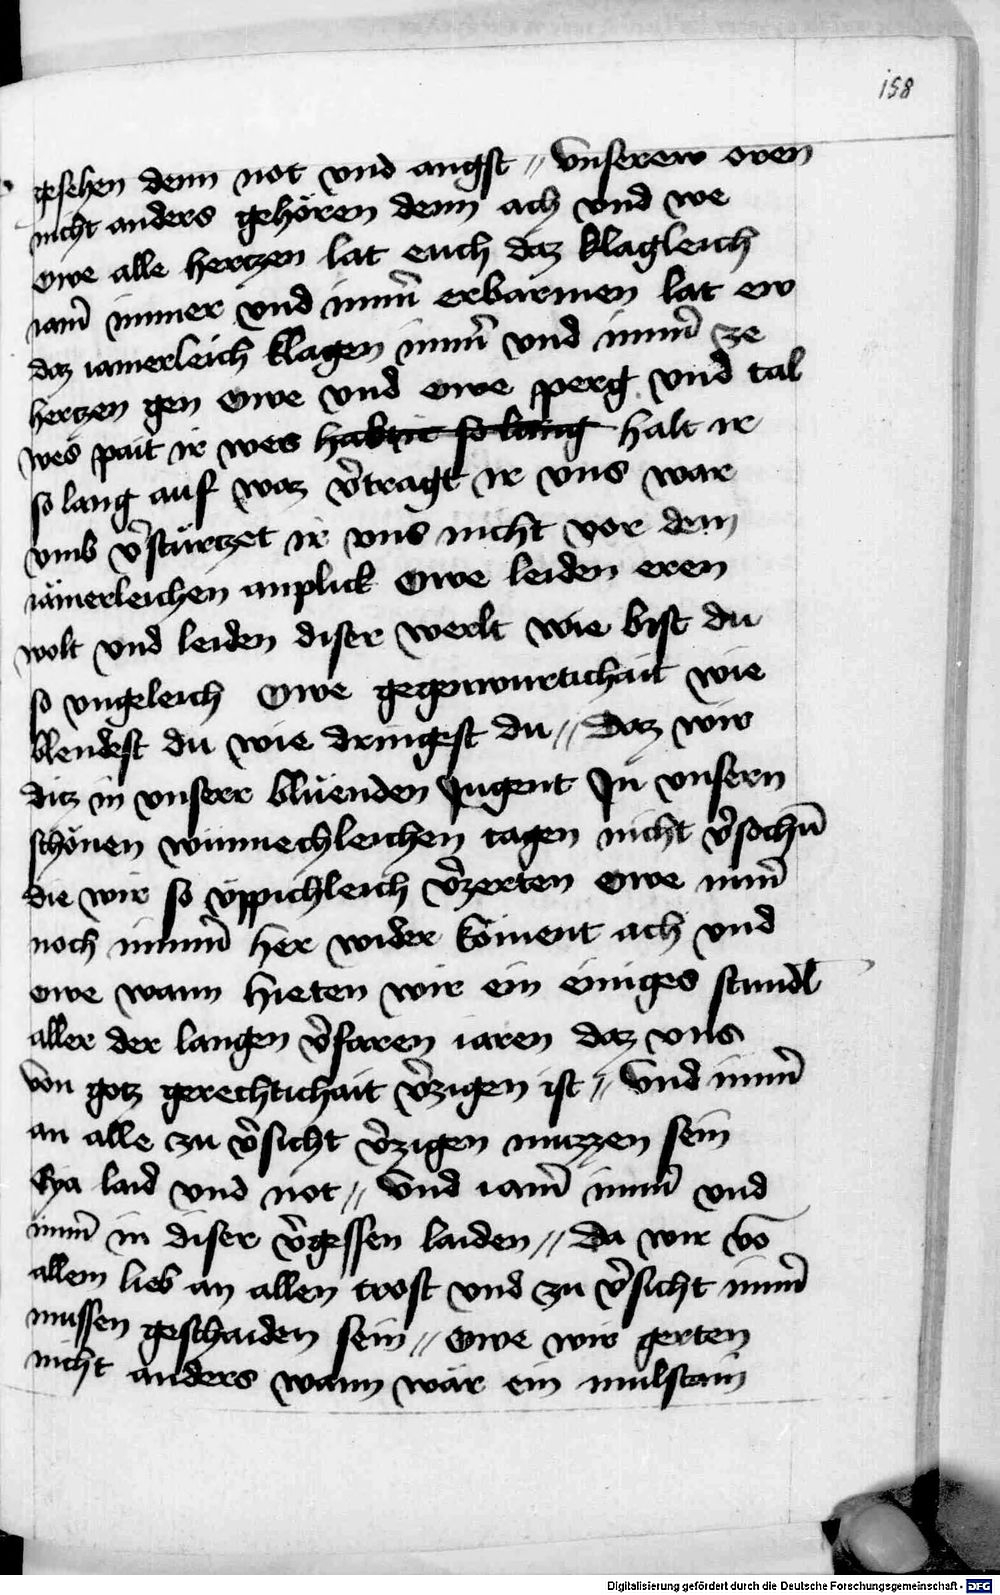 158
gesehen denn not vnd angst // Vnserew oren
nicht anders gehören denn ach vnd we
owe alle hertzen lat euch daz klagleich
iam̄ immer vnd imm̄ erbarmen lat ew
daz iamerleich klagen imm̄ vnd imm̄ ze
hertzen gen owe vnd owe perg vnd tal
wes pait ir wes habt ir so lang halt ir
so lang auf waz v̄tragt ir vns war
vmb v̄stürtzet ir vns nicht vor dem
iämerleichen anplick Owe leiden eren
wolt vnd leiden diser werlt wie bist du
so vngeleich Owe gegenwurtichait wie
blendest du wie dringest du // daz wir
ditz in vnserr blüenden Jugent Jn vnsern
schönen wunnechleichen tagen nicht v̄sochn̄
die wir so üppichleich v̄zerten owe nim̄
noch nimm̄ her wider köment ach vnd
owe wann hieten wir ein einiges stundl
aller der langen v̄faren iaren daz vns
von gotz gerechtichait v̄zigen ist // Vnd imm̄
an alle zu v̄sicht v̄zigen muzzen sein
Eya laid vnd not // Vnd iam̄ imm̄ vnd
imm̄ in diser v̄gessen laiden // Da wir vō
allem lieb an allen trost vnd zu v̄sicht imm̄
mussen geschaiden sein // Owe wir gerten
nicht anders wann wär ein mulstain
Digitalisierung gefördert durch die Deutsche Forschungsgemeinschaft - DFG